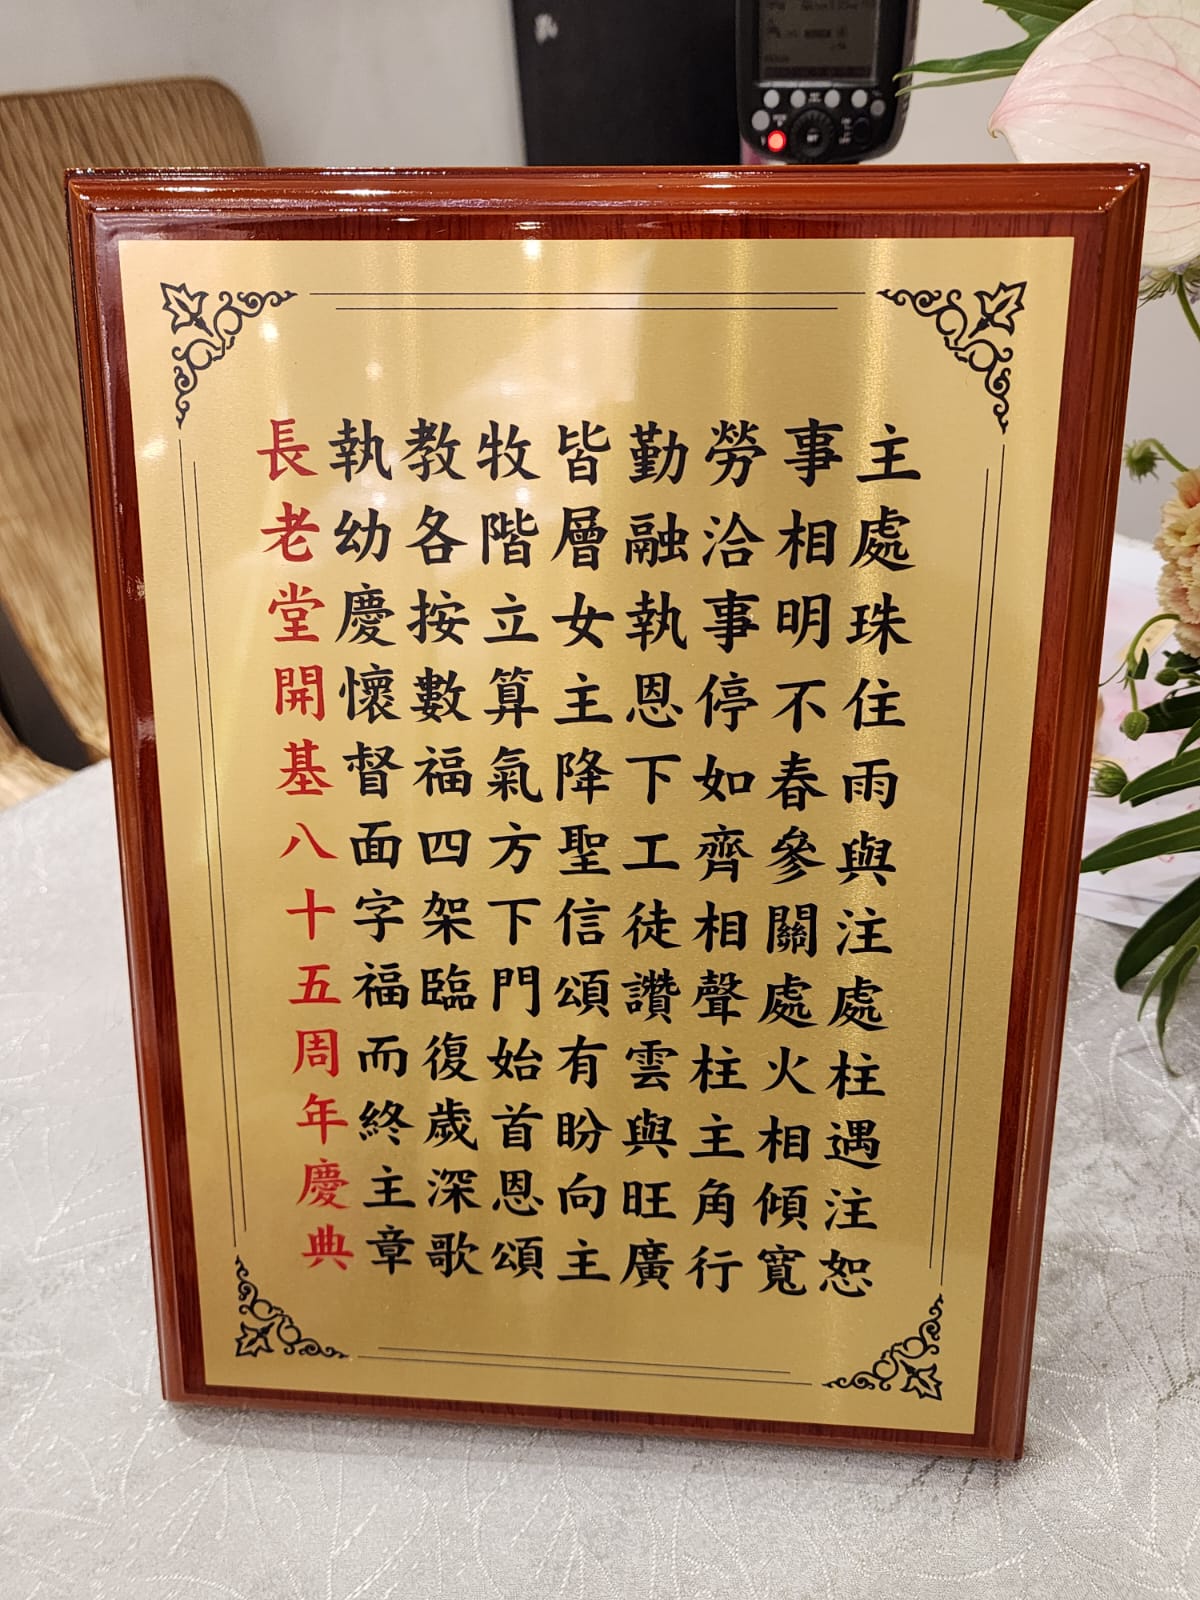 長執教牧皆勤勞事主
老幼各階層融洽相處
堂慶按立女執事明珠
開懷數算主恩停不住
基督福氣降下如春雨
八面四方聖工齊參與
十字架下信徒相關注
五福臨門頌讚聲處處
周而復始有雲柱火柱
年終歲首盼與主相遇
慶主深恩向旺角傾注
典章歌頌主廣行寬恕